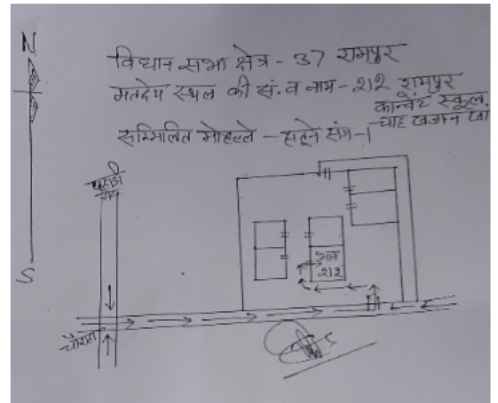 N
विधान सभा क्षेत्र - 37 रामपुर
मतदेय स्थल की सं. व नाम - 212 रामपुर
कान्वेंट स्कूल,
चाह खजान खां
सम्मिलित मोहल्ले -
पहाडी
गेट
212
चौराहा
S